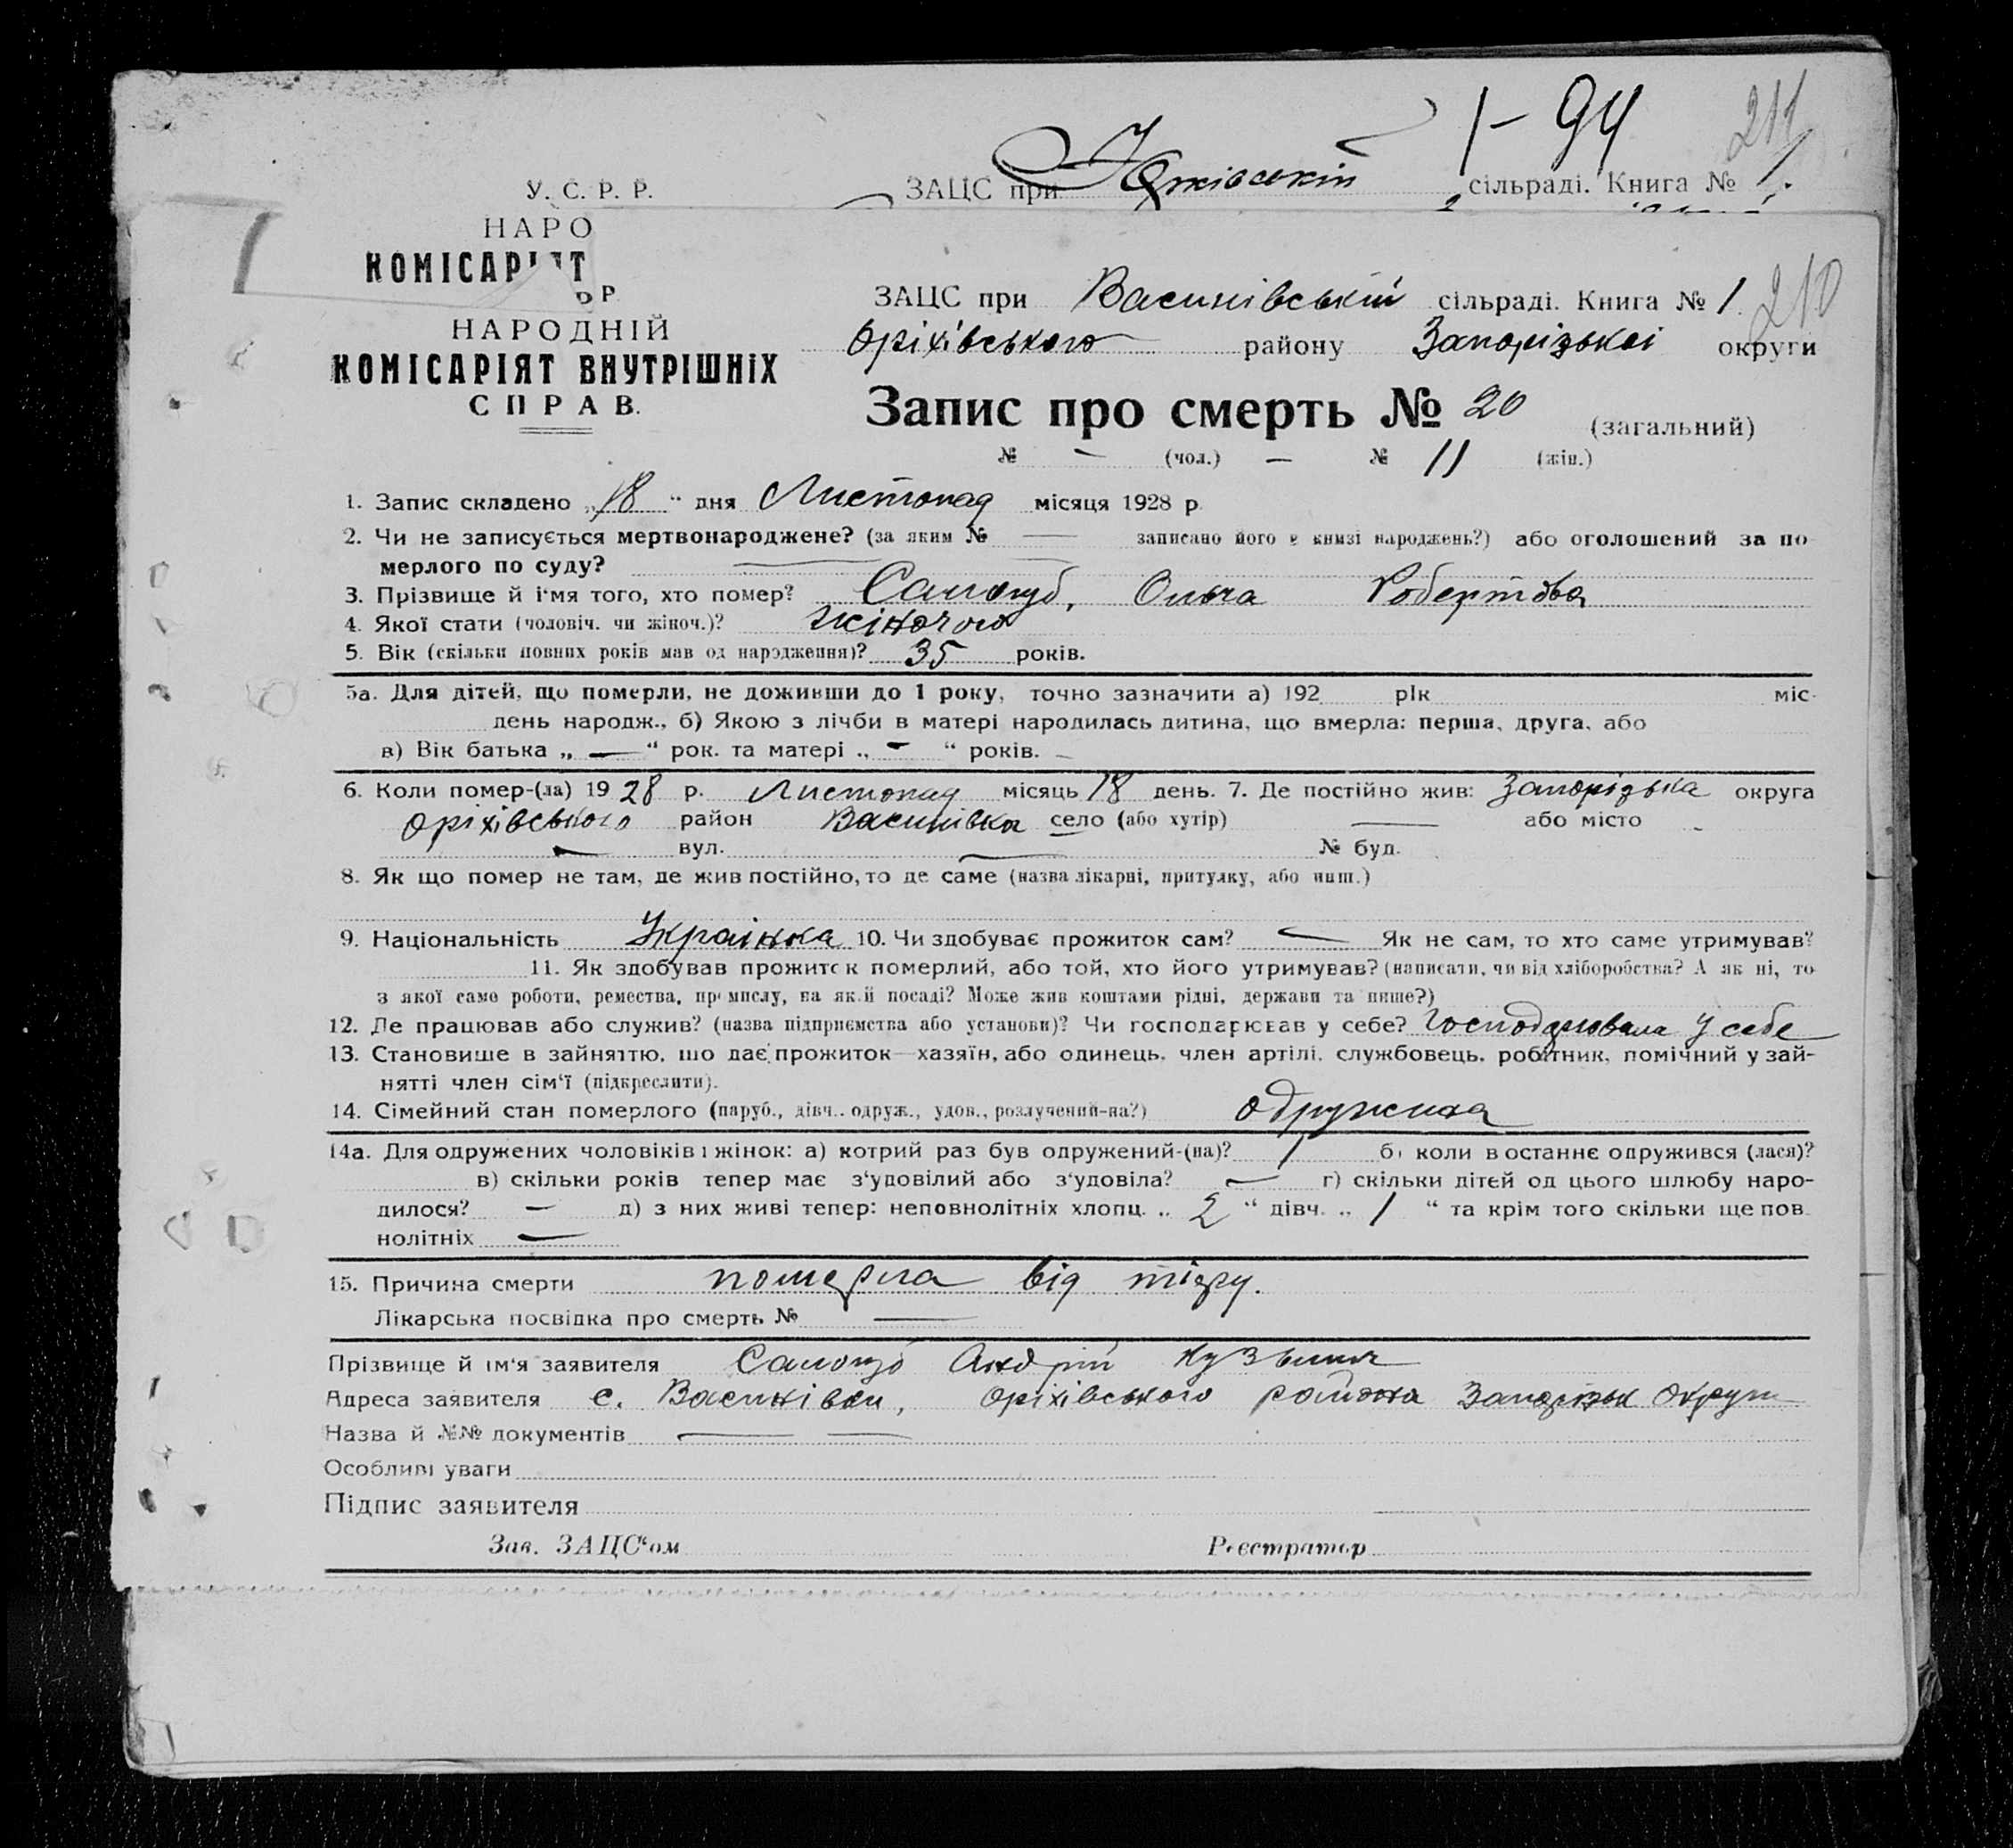 1-94
211
У. С. Р. Р.
ЗАЦС при сільраді. Книга № 1.
НАРО
КОМІСАРІЯТ
Р
ЗАЦС при Васинівській сільраді. Книга № 1. 210
НАРОДНІЙ
Оріхівського району Запорізької округи
КОМІСАРІЯТ ВНУТРІШНІХ
СПРАВ.
Запис про смерть № 20 (загальний)
№ — (чол.) — № 11 (жін.)
1. Запис складено „18" дня Листопад місяця 1928 р.
2. Чи не записується мертвонароджене? (за яким № — записано його в книзі народжень?) або оголошений за по
мерлого по суду? —
3. Прізвище й ім'я того, хто помер? Самокуб, Ольга Робертова
4. Якої стати (чоловіч. чи жіноч.)? жіночого
5. Вік (скільки повних років мав од народження)? 35 років.
5а. Для дітей, що померли, не доживши до 1 року, точно зазначити а) 192 рік міс.
день народж., б) Якою з лічби в матері народилась дитина, що вмерла: перша, друга, або
в) Вік батька „ — " рок. та матері „ - " років. –
6. Коли помер-(ла) 1928 р. Листопад місяць 18 день. 7. Де постійно жив: Запорізька округа
Оріхівського район Васинівка село (або хутір) — або місто -
— вул. — № буд.
8. Як що помер не там, де жив постійно, то де саме (назва лікарні, притулку, або инш.)
9. Національність Українка 10. Чи здобуває прожиток сам? — Як не сам, то хто саме утримував?
11. Як здобував прожиток померлий, або той, хто його утримував? (написати, чи від хліборобства? А як ні, то
з якої само роботи, ремества, промислу, на якій посаді? Може жив коштами рідні, держави та инше?)
12. Де працював або служив? (назва підприємства або установи)? Чи господарював у себе? Господарювала у себе
13. Становище в зайняттю, що дає прожиток—хазяїн, або одинець, член артілі, службовець, робітник, помічний у зай-
нятті член сім'ї (підкреслити).
14. Сімейний стан померлого (паруб., дівч.. одруж., удов., розлучений-на?) одружена
14а. Для одружених чоловіків і жінок: а) котрий раз був одружений-(на)? 1 б) коли в останнє одружився (лася)?
в) скільки років тепер має з'удовілий або з'удовіла? — г) скільки дітей од цього шлюбу наро-
дилося? — д) з них живі тепер: неповнолітніх хлопц. „ 2 " дівч. „ 1 " та крім того скільки ще пов
нолітніх —
15. Причина смерти померла від тіфу.
Лікарська посвідка про смерть № —
Прізвище й ім'я заявителя Самокуб Андрій Кузьмич
Адреса заявителя с. Васинівки, Оріхівського района Запорізьк Округи
Назва й №№ документів — —
Особливі уваги
Підпис заявителя
Зав. ЗАЦС'ом Реєстратор